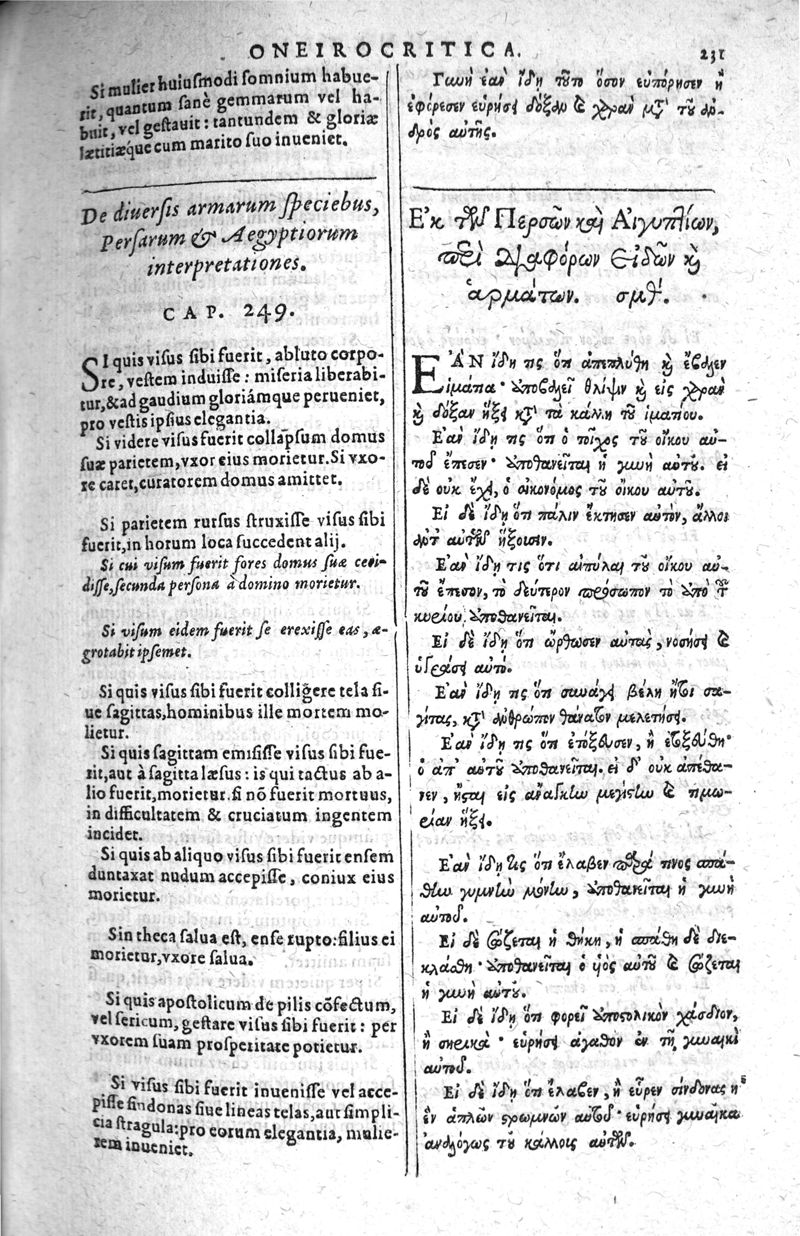 ONEIROCRITICA. 231
Si mulier huiusmodi somnium habue-
rit, quantum sanè gemmarum vel ha-
buit, vel gestauit: tantundem & gloriæ
lætitiæque cum marito suo inueniet.
De diuersis armarum speciebus,
Persarum & Aegyptiorum
interpretationes.
CAP. 249.
SI quis visus sibi fuerit, abluto corpo-
re, vestem induisse: miseria liberabi-
tur, & ad gaudium gloriámque perueniet,
pro vestis ipsius elegantia.
Si videre visus fuerit collapsum domus
suæ parietem, vxor eius morietur. Si vxo-
re caret, curatorem domus amittet.
Si parietem rursus struxisse visus sibi
fuerit, in horum loca succedent alij.
Si cui visum fuerit fores domus suæ ceci-
disse, secunda persona à domino morietur.
Si visum eidem fuerit se erexisse eas, æ-
grotabit ipsemet.
Si quis visus sibi fuerit colligere tela si-
ue sagittas, hominibus ille mortem mo-
lietur.
Si quis sagittam emisisse visus sibi fue-
rit, aut à sagitta læsus: is qui tactus ab a-
lio fuerit, morietur. si nõ fuerit mortuus,
in difficultatem & cruciatum ingentem
incidet.
Si quis ab aliquo visus sibi fuerit ensem
duntaxat nudum accepisse, coniux eius
morietur.
Sin theca salua est, ense rupto: filius ei
morietur, vxore salua.
Si quis apostolicum de pilis cõfectum,
vel sericum, gestare visus sibi fuerit: per
vxorem suam prosperitate potietur.
Si visus sibi fuerit inuenisse vel acce-
pisse sindonas siue lineas telas, aut simpli-
cia stragula: pro eorum elegantia, mulie-
rem inueniet.
Γυνὴ ἐὰν ἴδῃ τοῦτο ὅσον εὐπόρησεν ἢ
ἐφόρεσεν εὑρήσει δόξαν καὶ χαρὰν μετὰ τοῦ ἀν-
δρὸς αὐτῆς.
Ἐκ τῶν Περσῶν καὶ Αἰγυπτίων,
περὶ διαφόρων εἰδῶν καὶ
ἁρμάτων. σμθ΄.
ΕΑΝ ἴδῃ τις ὅτι ἀπεπλύθη καὶ ἔβαλεν
εἱμάτια· ὑποβαλεῖ θλίψιν καὶ εἰς χαρὰν
καὶ δόξαν ἥξει κατὰ τὰ κάλλη τοῦ ἱματίου.
Ἐὰν ἴδῃ τις ὅτι ὁ τοῖχος τοῦ οἴκου αὐ-
τοῦ ἔπεσεν· ἀποθανεῖται ἡ γυνὴ αὐτοῦ. εἰ
δὲ οὐκ ἔχει, ὁ οἰκονόμος τοῦ οἴκου αὐτοῦ.
Εἰ δὲ ἴδῃ ὅτι πάλιν ἔκτησεν αὐτὸν, ἄλλοι
ἀντ᾽ αὐτῶν ἥξουσιν.
Ἐὰν ἴδῃ τις ὅτι αἱ πύλαι τοῦ οἴκου αὐ-
τοῦ ἔπεσον, τὸ δεύτερον πρόσωπον τὸ ἀπὸ τοῦ
κυρίου ἀποθανεῖται.
Εἰ δὲ ἴδῃ ὅτι ὤρθωσεν αὐτὰς, νοσήσει καὶ
ὑγιάσει αὐτό.
Ἐὰν ἴδῃ τις ὅτι συνάγει βέλη ἤτοι σα-
γίτας, κατὰ ἀνθρώπων θάνατον μελετήσει.
Ἐὰν ἴδῃ τις ὅτι ἐτόξευσεν, ἢ ἐτοξεύθη·
ὁ ἀπ᾽ αὐτοῦ ἀποθανεῖται. εἰ δ᾽ οὐκ ἀπέθα-
νεν, ἥξει εἰς ἀνάγκην μεγίστην καὶ τιμω-
ρίαν ἥξει.
Ἐὰν ἴδῃ τις ὅτι ἔλαβεν παρά τινος σπά-
θην γυμνὴν μόνην, ἀποθανεῖται ἡ γυνὴ
αὐτοῦ.
Εἰ δὲ σώζεται ἡ θήκη, ἡ σπάθη δὲ διε-
κλάσθη· ἀποθανεῖται ὁ υἱὸς αὐτοῦ καὶ σώζεται
ἡ γυνὴ αὐτοῦ.
Εἰ δὲ ἴδῃ ὅτι φορεῖ ἀποστολικὸν χάσδιον,
ἢ σηρικὰ· εὑρήσει ἀγαθὸν ἐν τῇ γυναικὶ
αὐτοῦ.
Εἰ δὲ ἴδῃ ὅτι ἔλαβεν, ἢ εὗρεν σίνδονας ἢ
ἓν ἁπλῶν στρωμνῶν αὐτοῦ· εὑρήσει γυναῖκα
ἀναλόγως τοῦ κάλλους αὐτῶν.